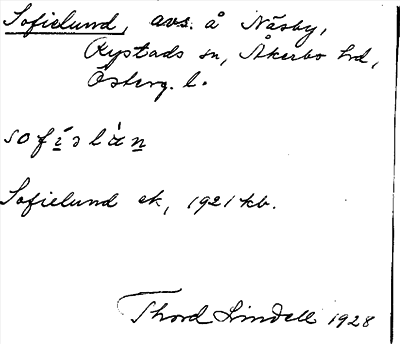 Sofielund, avs. å Näsby,
Rystads sn, Åkerbo hd,
Österg. l.
sofíslàn
Sofielund ek, 1921 kb.
Thord Lindell 1928